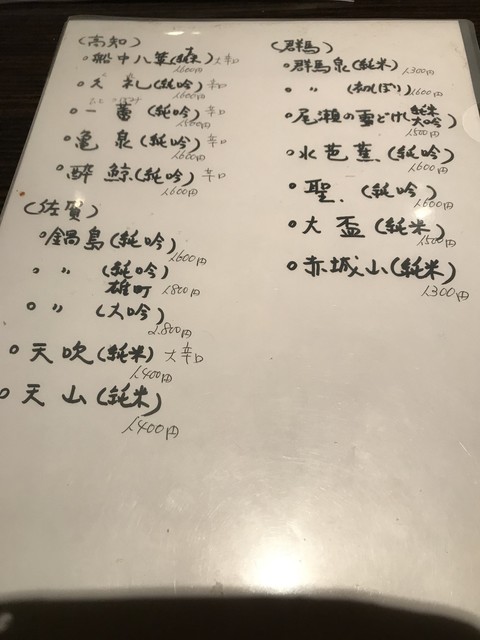 (高知)
・船中八策(純米)大辛口
1,600円
・久礼(純吟)辛口
1,600円
・一蕾(純吟)辛口
1,600円
・亀泉(純吟)辛口
1,600円
・酔鯨(純吟)辛口
1,600円
(佐賀)
・鍋島(純吟)
1,600円
・〃(純吟)
雄町 1,800円
・〃(大吟)
2,800円
・天吹(純米)大辛口
1,400円
・天山(純米)
1,400円
(群馬)
・群馬泉(純米)
1,300円
・〃(初しぼり)
1,600円
・尾瀬の雪どけ(純米大吟)
1,500円
・水芭蕉(純吟)
1,600円
・聖(純吟)
1,600円
・大盃(純米)
1,500円
・赤城山(純米)
1,300円